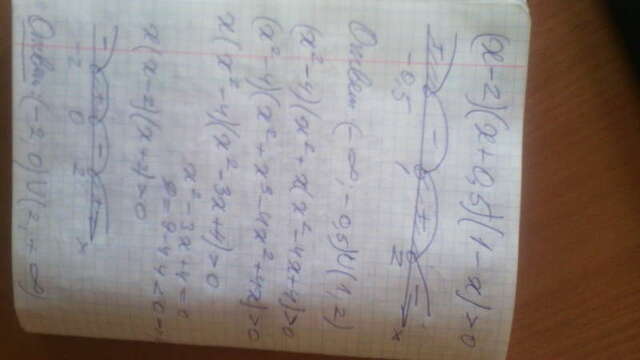 (x-2)(x+0,5)(1-x)>0
+ - + -
-0,5 1 2 x
Ответ (-∞; -0,5)U(1,2)
(x²-4)(x²+x(x²-4x+4)>0
(x²-4)(x²+x³-4x²+4x)>0
x(x²-4)(x²-3x+4)>0
x²-3x+4=0
D=9-4·4<0
x(x-2)(x+2)>0
- + - +
-2 0 2 x
Ответ (-2,0)U(2,+∞)